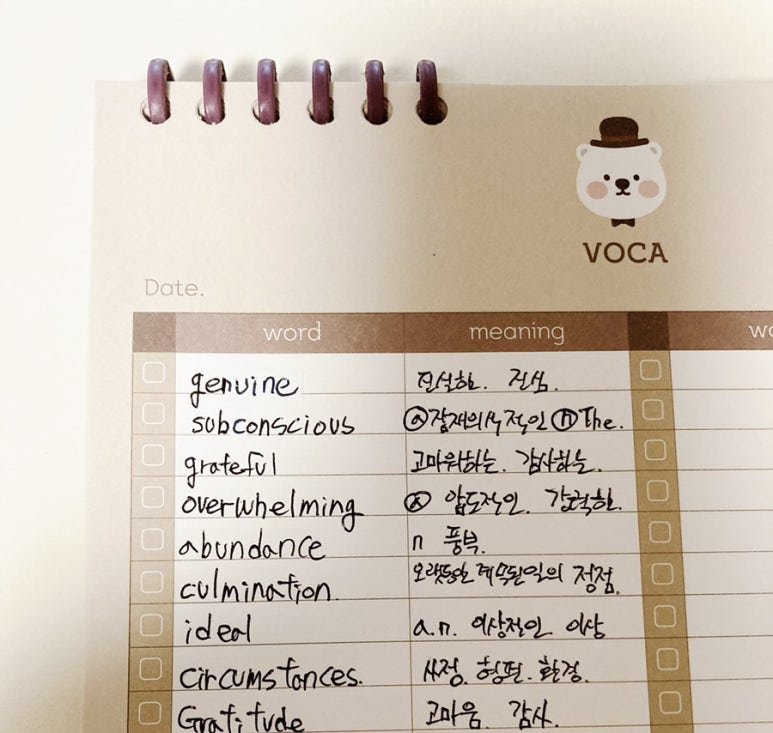 VOCA
Date.
word meaning wo
genuine 진실한. 진심.
subconscious ⓐ잠재의식적인 ⓝ The.
grateful 고마워하는. 감사하는.
overwhelming ⓐ 압도적인. 강력한.
abundance n 풍부.
culmination. 오랫동안 계속된일의 정점.
ideal a.n. 이상적인 이상
circumstances. 사정. 형편. 환경.
Gratitude 고마움. 감사.